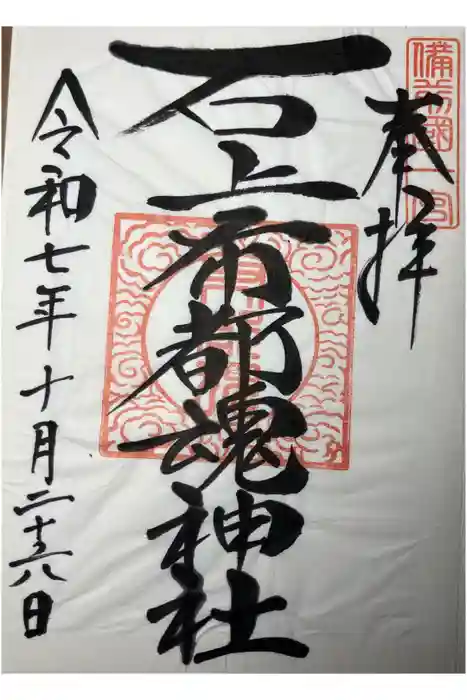 備前國一宮
奉拝
石上布都魂神社
令和七年十月二十八日